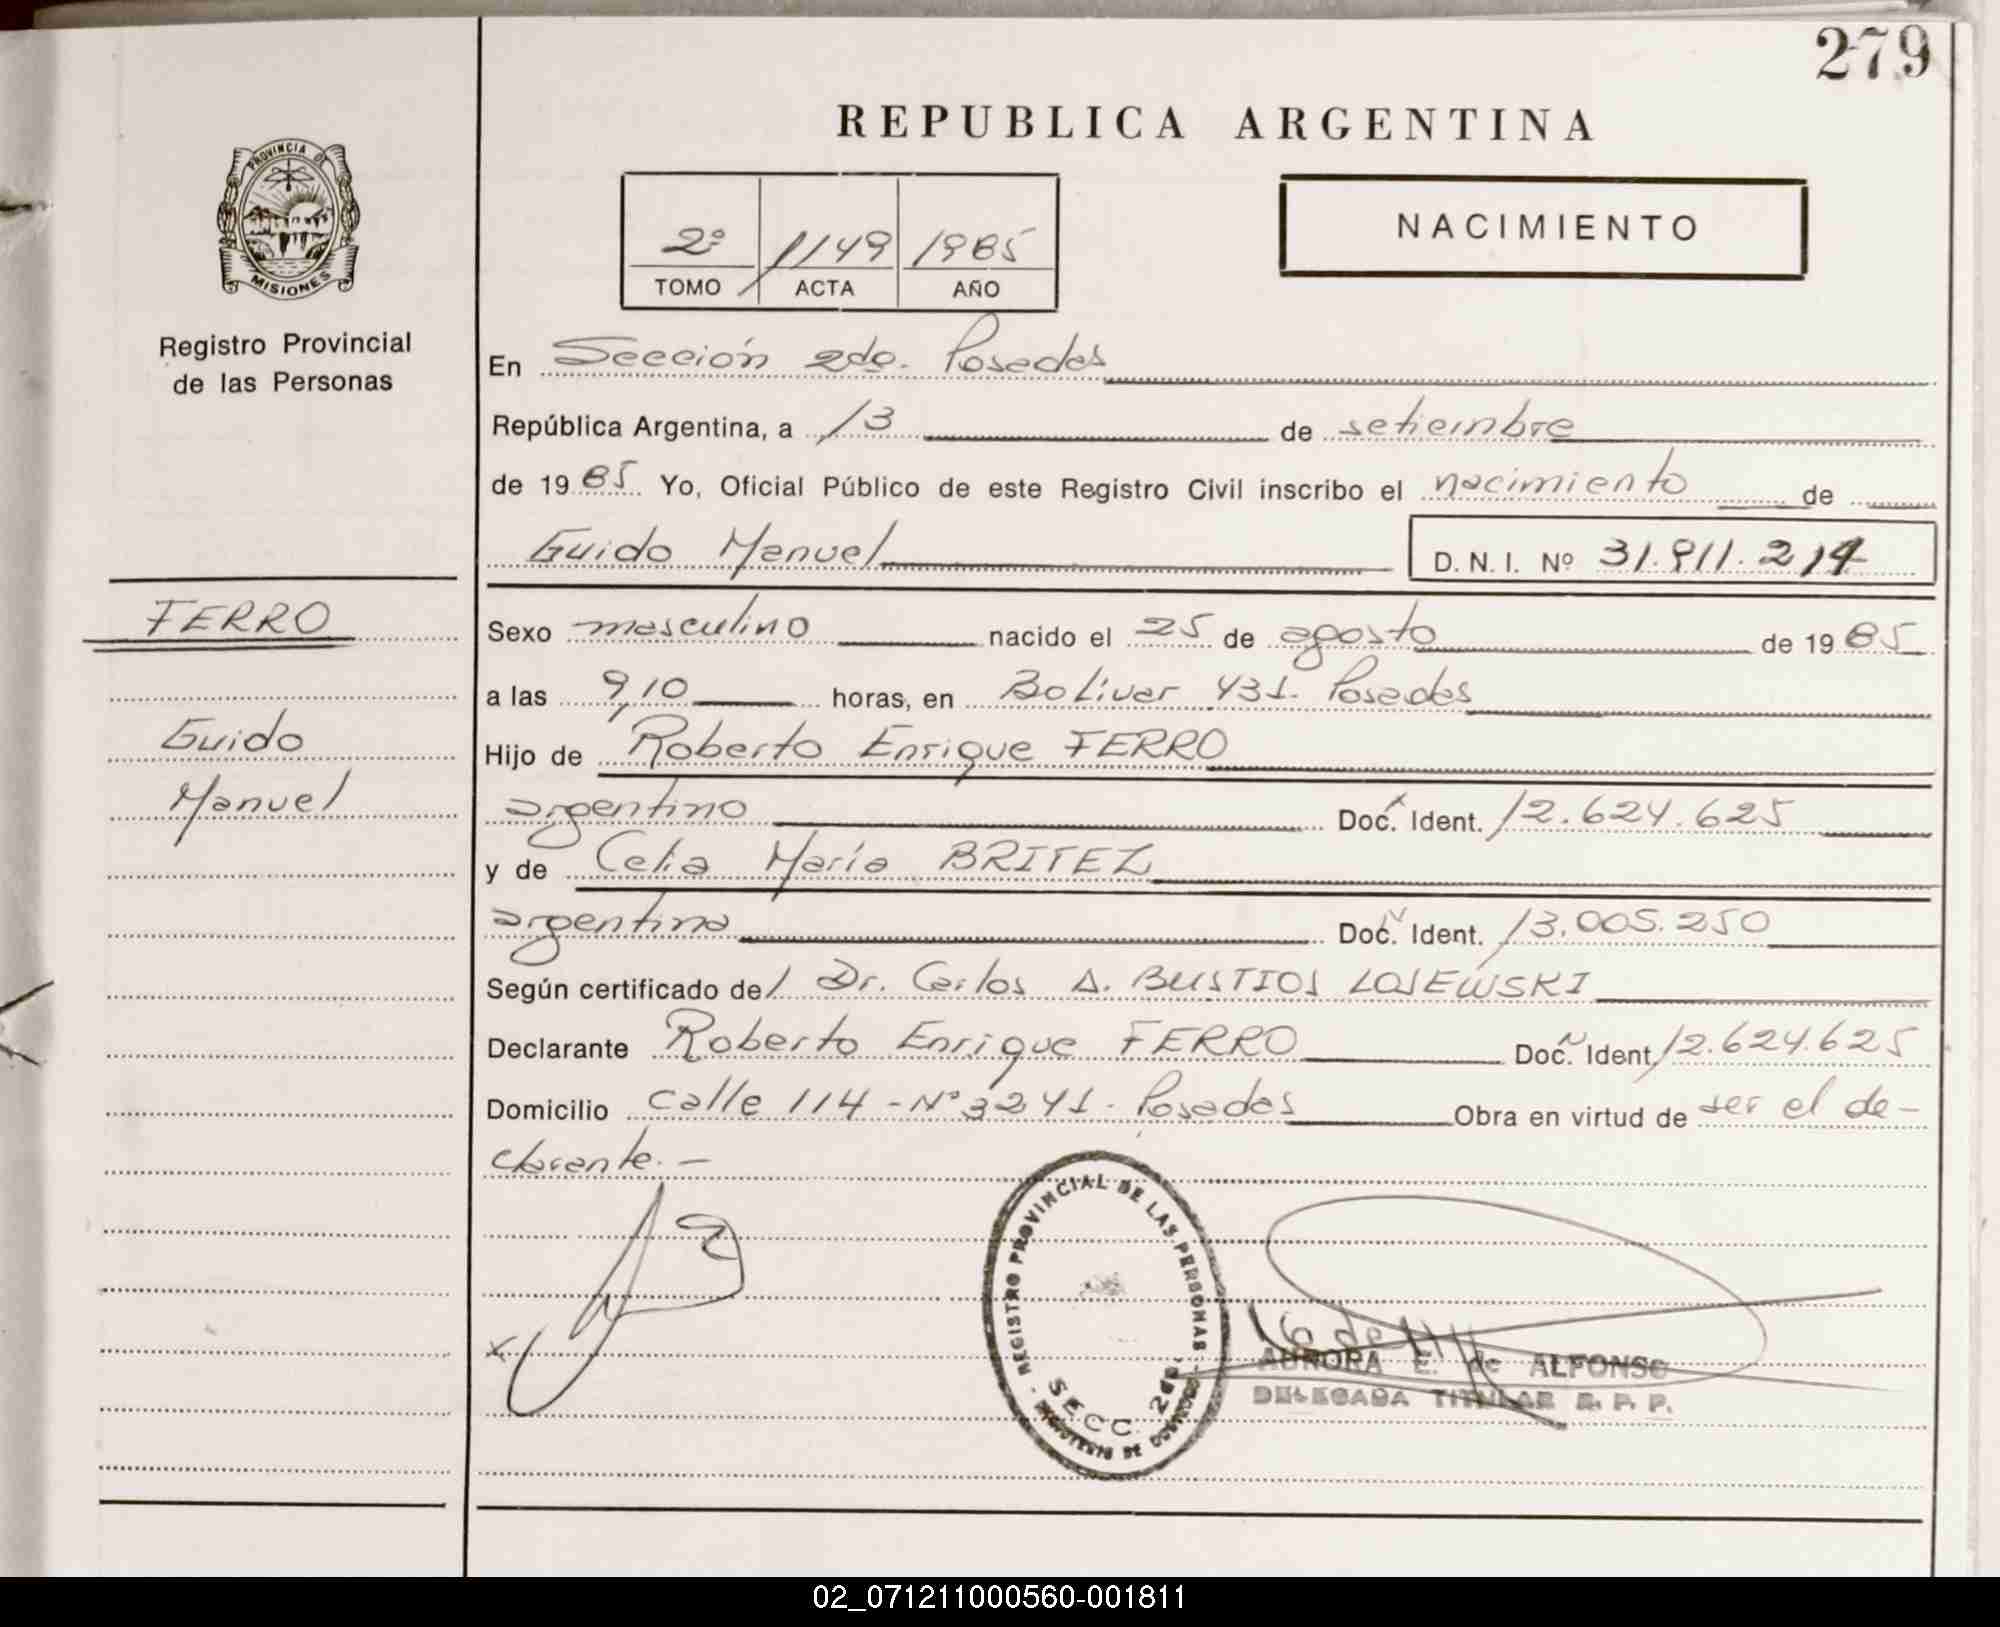 279
REPUBLICA ARGENTINA
PROVINCIA DE
MISIONES
Registro Provincial
de las Personas
2º 1149 1985
TOMO ACTA AÑO
NACIMIENTO
En Sección 2da. Posadas
República Argentina, a 13 de setiembre
de 19 85 Yo, Oficial Público de este Registro Civil inscribo el nacimiento de
Guido Manuel D. N. I. Nº 31.911.214
FERRO
Guido
Manuel
Sexo masculino nacido el 25 de agosto de 19 85
a las 9,10 horas, en Bolívar 431. Posadas
Hijo de Roberto Enrique FERRO
argentino Doc. Ident. 12.624.625
y de Celia María BRITEZ
argentina Doc. Ident. 13.005.250
Según certificado del Dr. Carlos A. BUSTIOS LOSEWSKI
Declarante Roberto Enrique FERRO Doc. Ident. 12.624.625
Domicilio calle 114 - Nº 3241. Posadas Obra en virtud de ser el de-
clarante. -
REGISTRO PROVINCIAL DE LAS PERSONAS
SECC. 2da.
MINISTERIO DE GOBIERNO
AURORA E. de ALFONSO
DELEGADA TITULAR R. P. P.
02_071211000560-001811